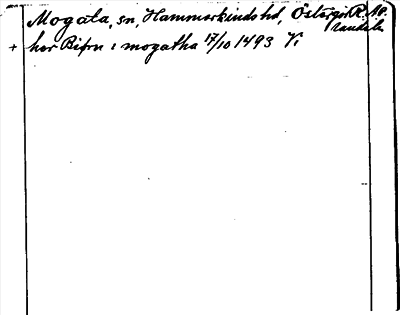 Mogata, sn, Hammerkinds hd, Östergöt R. Ap.
landet
+ her Biörn i mogatha 17/10 1493 Vi